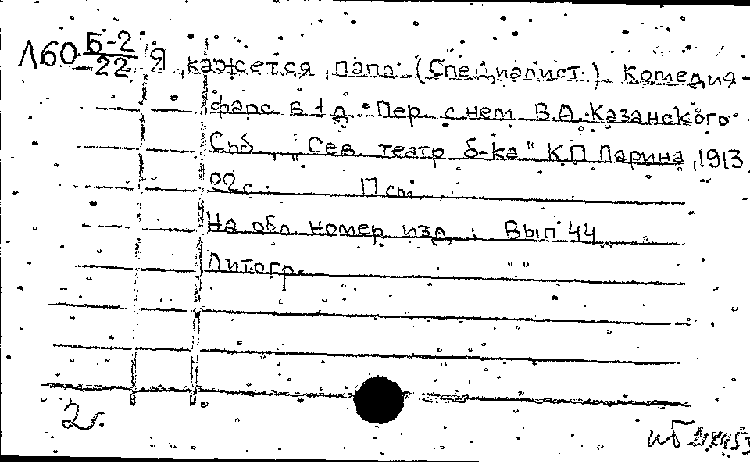 Л60 Б-2
-22
Я, кажется, папа. (Специалист.) Комедия-
фарс в 1 д. Пер. с нем. В.А. Казанского.
Спб., "Сев. театр. б-ка" К.П. Ларина, 1913
22 с.
На обл. номер изд.: Вып 44
Литогр.
2г.